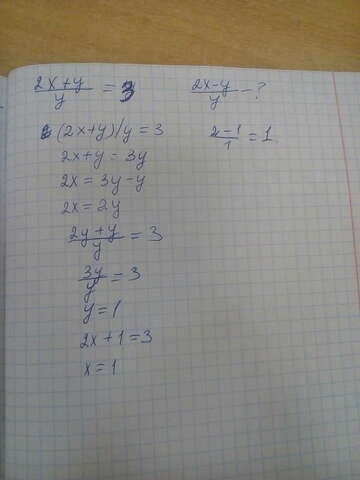 (2x+y)/y = 3
(2x-y)/y - ?
(2x+y)/y = 3
(2-1)/1 = 1
2x+y = 3y
2x = 3y-y
2x = 2y
(2y+y)/y = 3
3y/y = 3
y = 1
2x+1=3
x=1